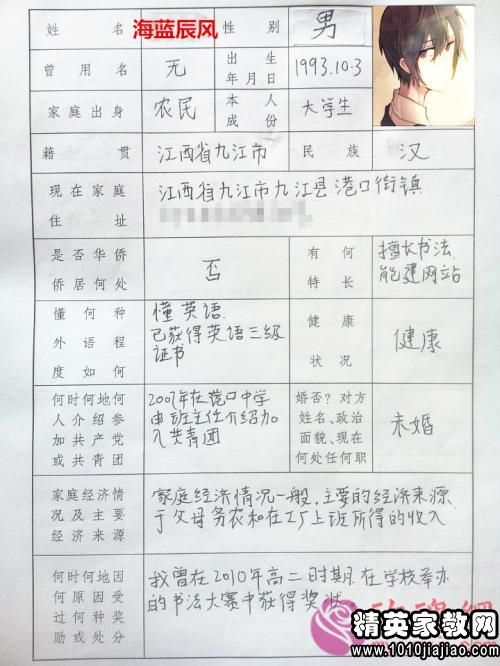 姓名 海蓝辰风 性别 男
曾用名 无 出生年月日 1993.10.3
家庭出身 农民 本人成份 大学生
籍贯 江西省九江市 民族 汉
现在家庭住址 江西省九江市九江县港口街镇
是否华侨
侨居何处
否
有何特长
擅长书法
能建网站
懂何种
外语程
度如何
懂英语.
已获得英语三级
证书
健康状况
健康
何时何地何
人介绍参
加共产党
或共青团
2007年在港口中学
由班主任介绍加
入共青团
婚否?对方
姓名、政治
面貌、现在
何处任何职
未婚
家庭经济情
况及主要
经济来源
家庭经济情况一般.主要的经济来源
于父母务农和在工厂上班所得的收入
何时何地因
何原因受
过何种奖
励或处分
我曾在2010年高二时期在学校举办
的书法大赛中获得奖状
精英家教网
www.1010jiajiao.com